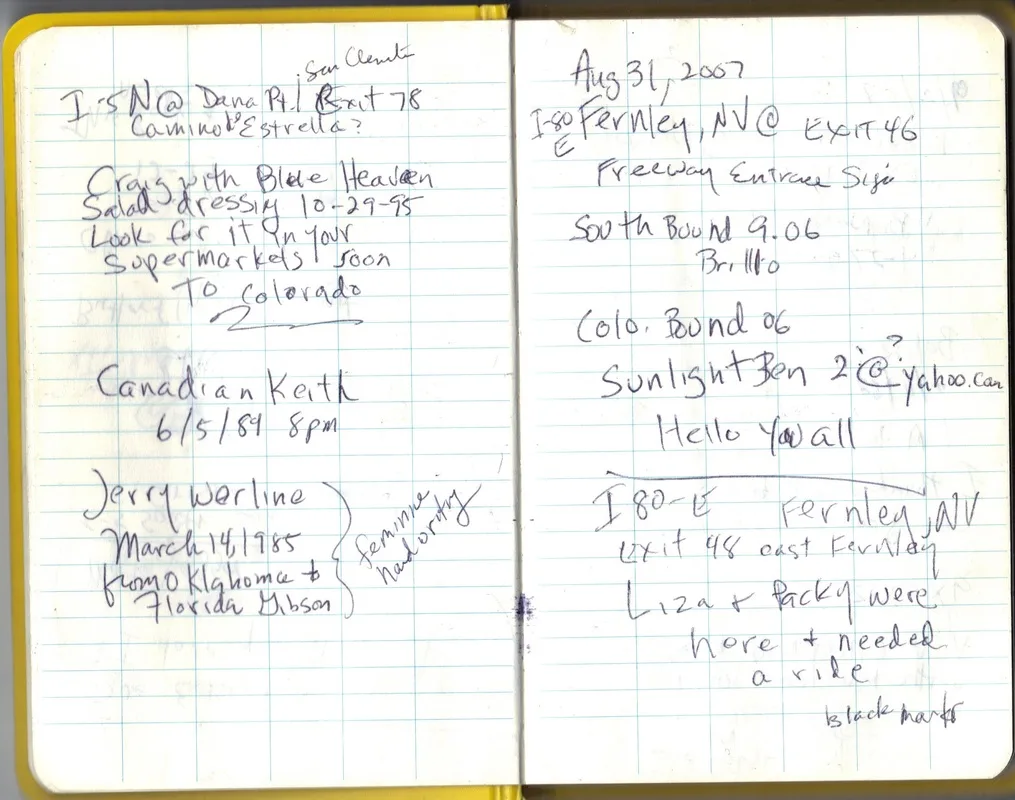 San Clemente
I-5 N @ Dana Pt. Exit 78
Camino De Estrella?
Craig with Blue Heaven
Salad dressing 10-29-95
Look for it in your
Supermarkets soon
To Colorado
Canadian Keith
6/5/89 8pm
Jerry Werline
March 14, 1985
from Oklahoma to
Florida Gibson
feminine
handwriting
Aug 31, 2007
I-80 E Fernley, NV @ EXIT 46
Freeway Entrace Sign
South Bound 9.06
Brillo
Colo. Bound 06
?
SunlightBen 2 @ yahoo.com
Hello You all
I 80-E Fernley, NV
Exit 48 east Fernley
Liza + Packy were
here + needed
a ride
black marks